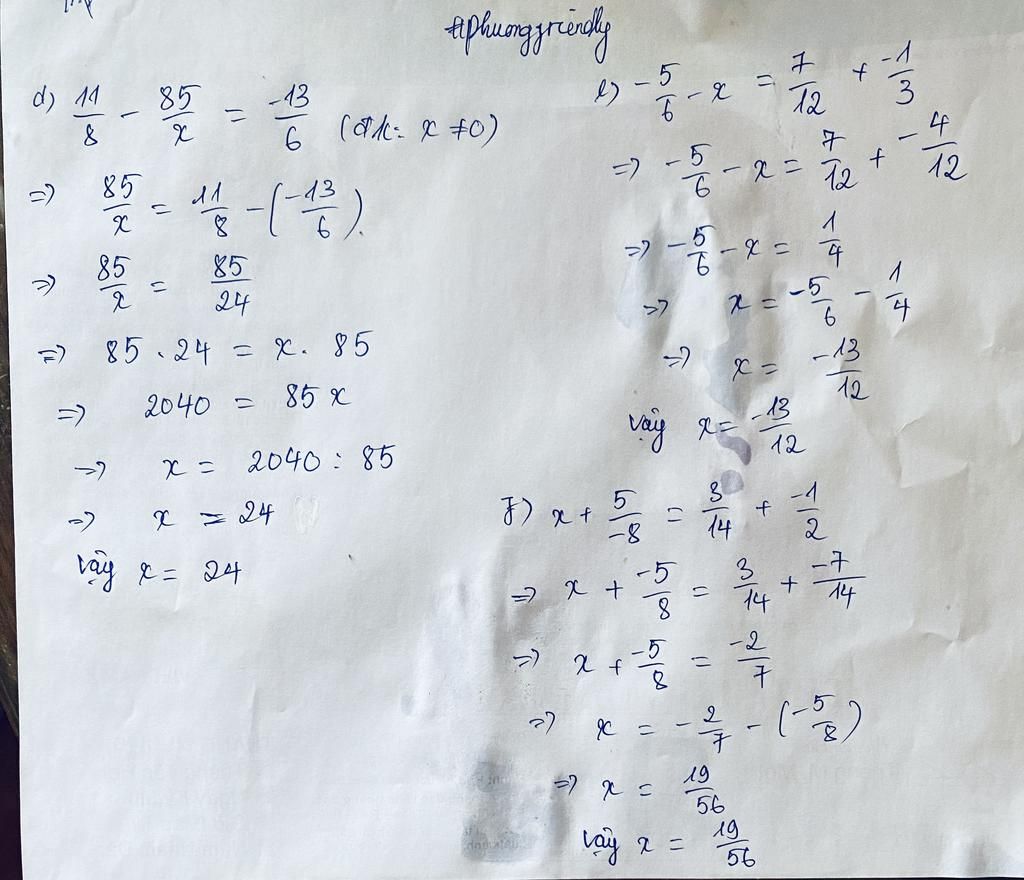 #phuongfriendly
d) 11/8 - 85/x = -13/6 (đk: x ≠ 0)
=> 85/x = 11/8 - (-13/6).
=> 85/x = 85/24
=> 85 . 24 = x . 85
=> 2040 = 85 x
=> x = 2040 : 85
=> x = 24
Vậy x = 24
e) -5/6 - x = 7/12 + -1/3
=> -5/6 - x = 7/12 + -4/12
=> -5/6 - x = 1/4
=> x = -5/6 - 1/4
=> x = -13/12
Vậy x = -13/12
f) x + 5/-8 = 3/14 + -1/2
=> x + -5/8 = 3/14 + -7/14
=> x + -5/8 = -2/7
=> x = -2/7 - (-5/8)
=> x = 19/56
Vậy x = 19/56